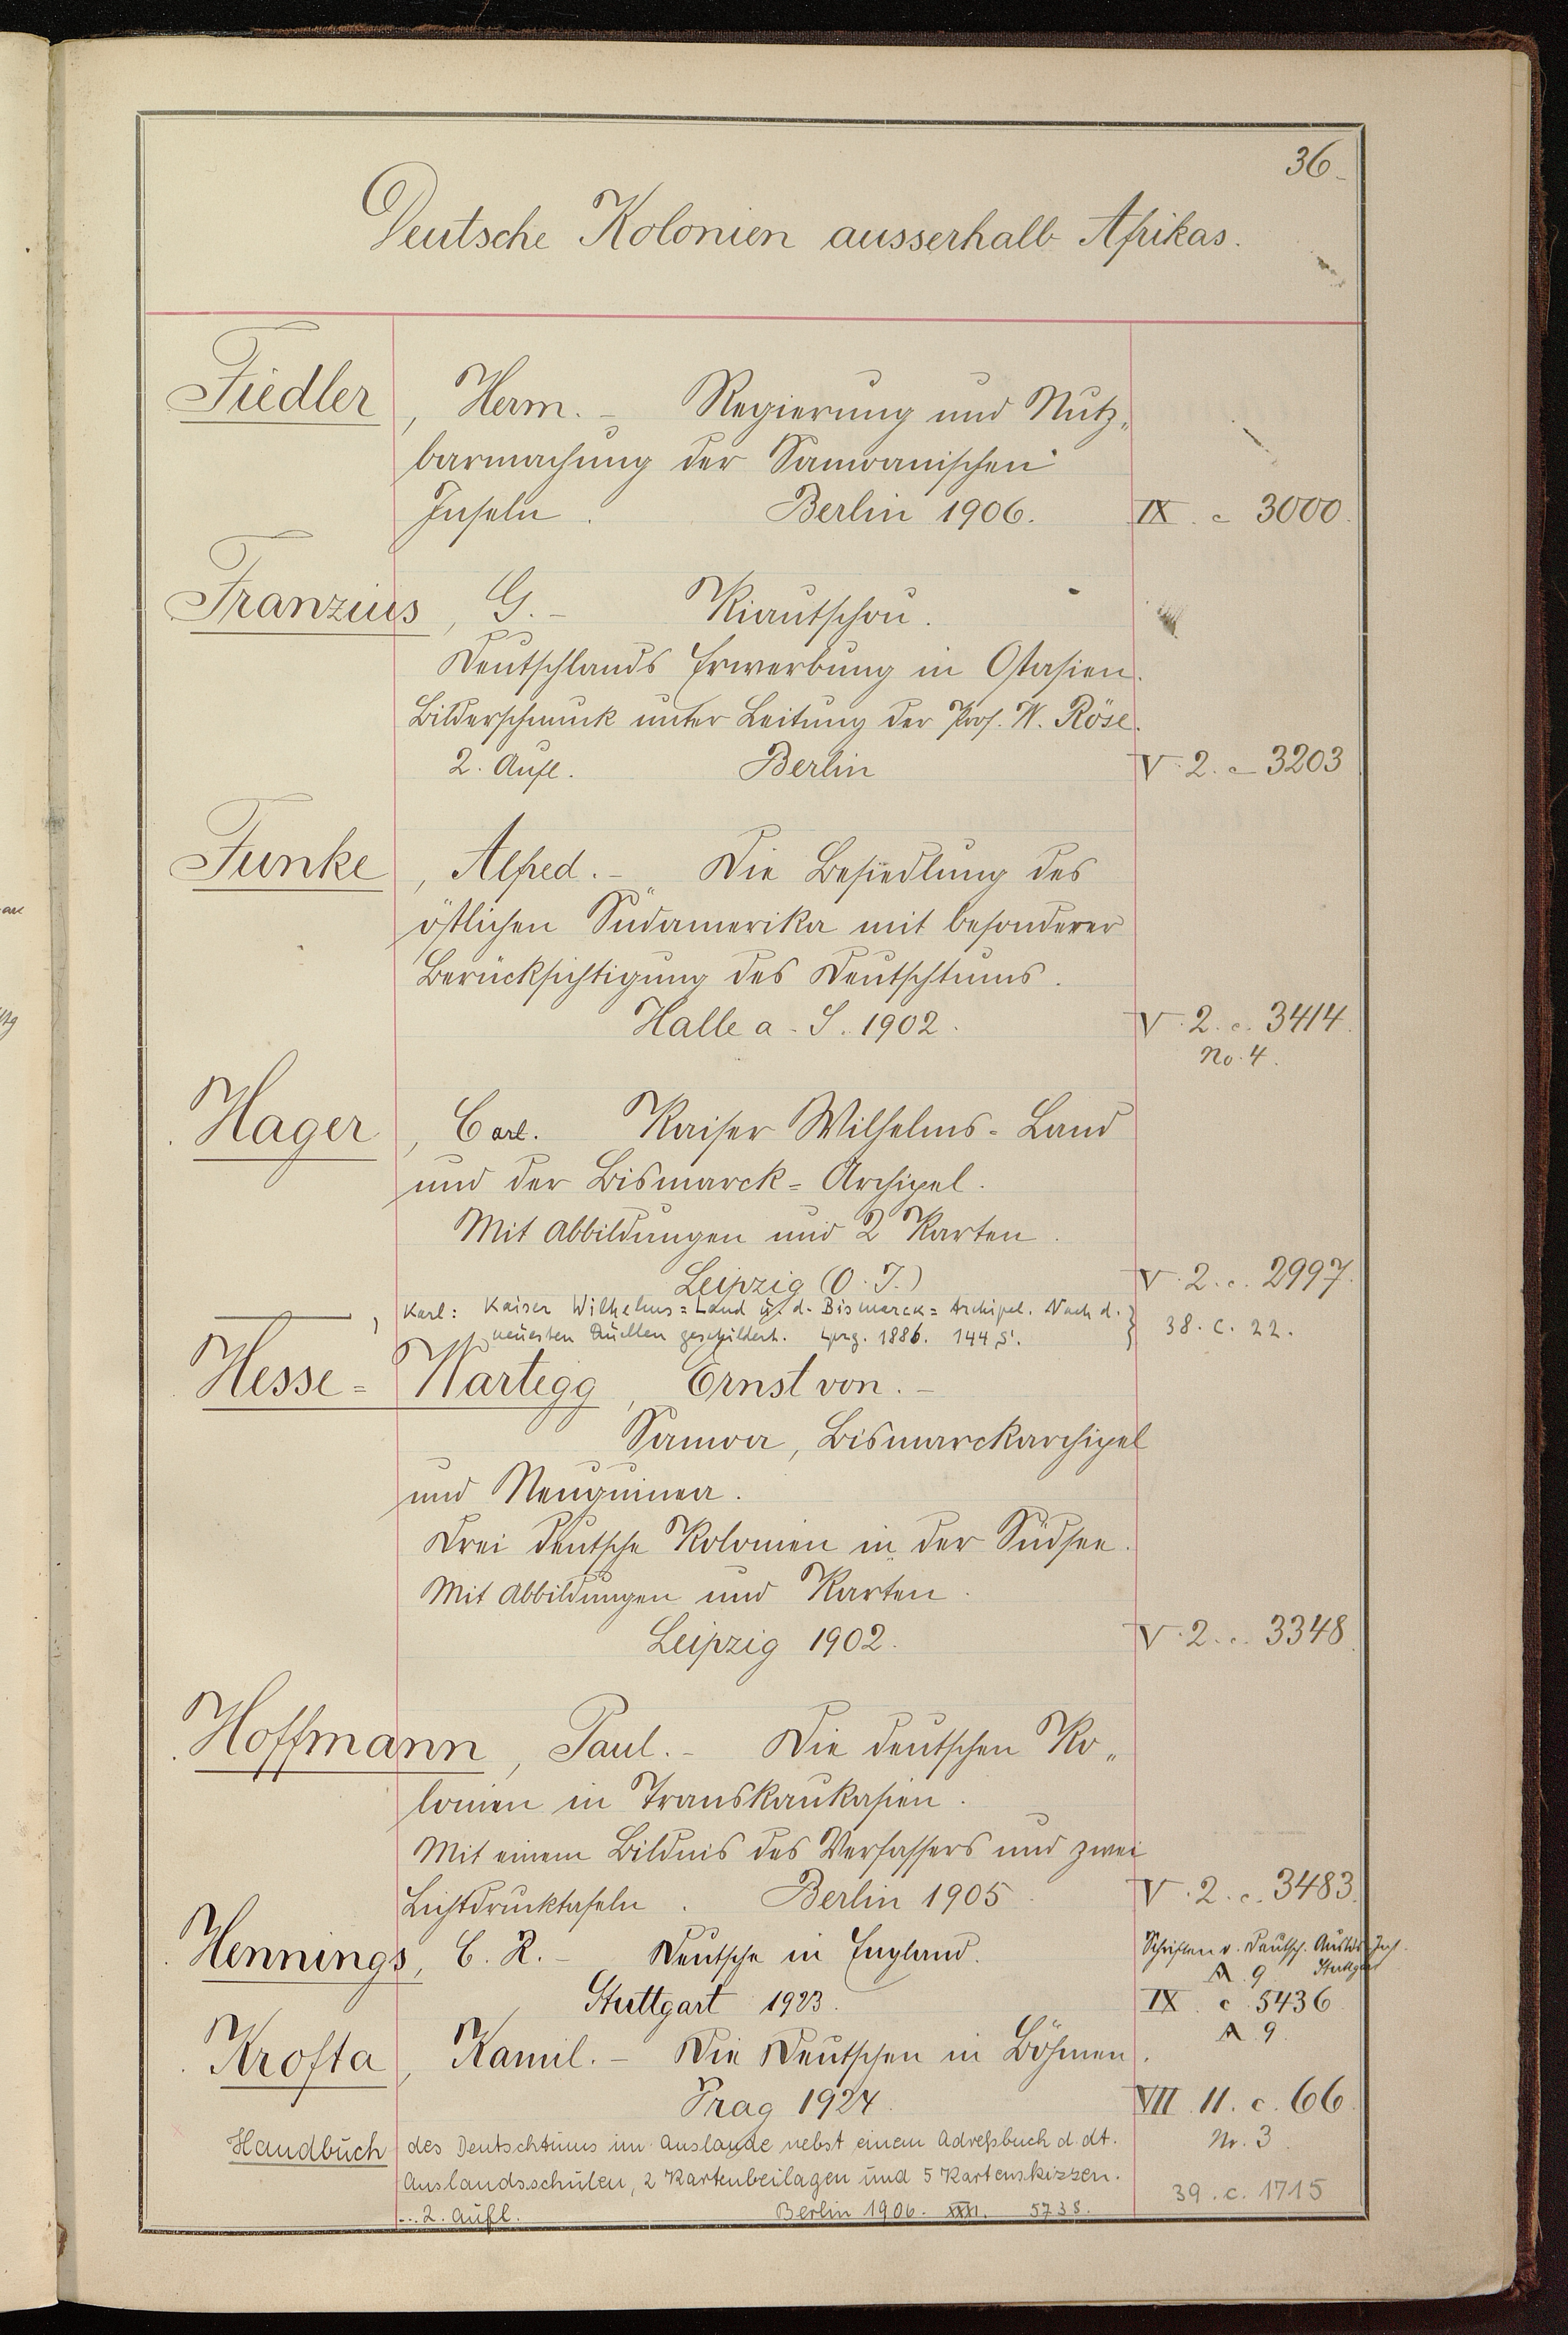 36.
Deutsche Kolonien ausserhalb Afrikas.
Fiedler, Herm. – Regierung und Nutz-
barmachung der Samoanischen
Inseln. Berlin 1906. IX. c 3000.
Franzius, G. – Kiautschou.
Deutschlands Erwerbung in Ostasien.
Bilderschmuck unter Leitung der Prof. W. Röse.
2. Aufl. Berlin V. 2. c 3203
Funke, Alfred. – Die Besiedlung des
östlichen Südamerika mit besonderer
Berücksichtigung des Deutschtums.
Halle a. S. 1902. V. 2. c. 3414.
No. 4.
Hager, Carl. Kaiser Wilhelms-Land
und der Bismarck-Archipel.
Mit Abbildungen und 2 Karten.
Leipzig (O. J.) V. 2. c. 2997.
———, Karl: Kaiser Wilhelms=Land u. d. Bismarck=Archipel. Nach d. } 38. C. 22.
neuesten Quellen geschildert. Lpzg. 1886. 144 S.
Hesse=Wartegg, Ernst von. –
Samoa, Bismarckarchipel
und Neuguinea.
Drei deutsche Kolonien in der Südsee.
Mit Abbildungen und Karten.
Leipzig 1902. V. 2. c. 3348
Hoffmann, Paul. – Die deutschen Ko-
lonien in Transkaukasien.
Mit einem Bildnis des Verfassers und zwei
Lichtdrucktafeln. Berlin 1905 V. 2. c. 3483.
Hennings, C. R. – Deutsche in England. Schriften v. Deutsch. Ausld. Inst.
Stuttgart
A. 9
Stuttgart 1923. IX. c. 5436
A. 9.
Krofta, Kamil. – Die Deutschen in Böhmen.
Prag 1924. VII. 11. c. 66.
Nr. 3.
Handbuch des Deutschtums im Auslande nebst einem Adreßbuch d. dt.
Auslandsschulen, 2 Kartenbeilagen und 5 Kartenskizzen. 39. c. 1715
2. Aufl. Berlin 1906. 573 S.